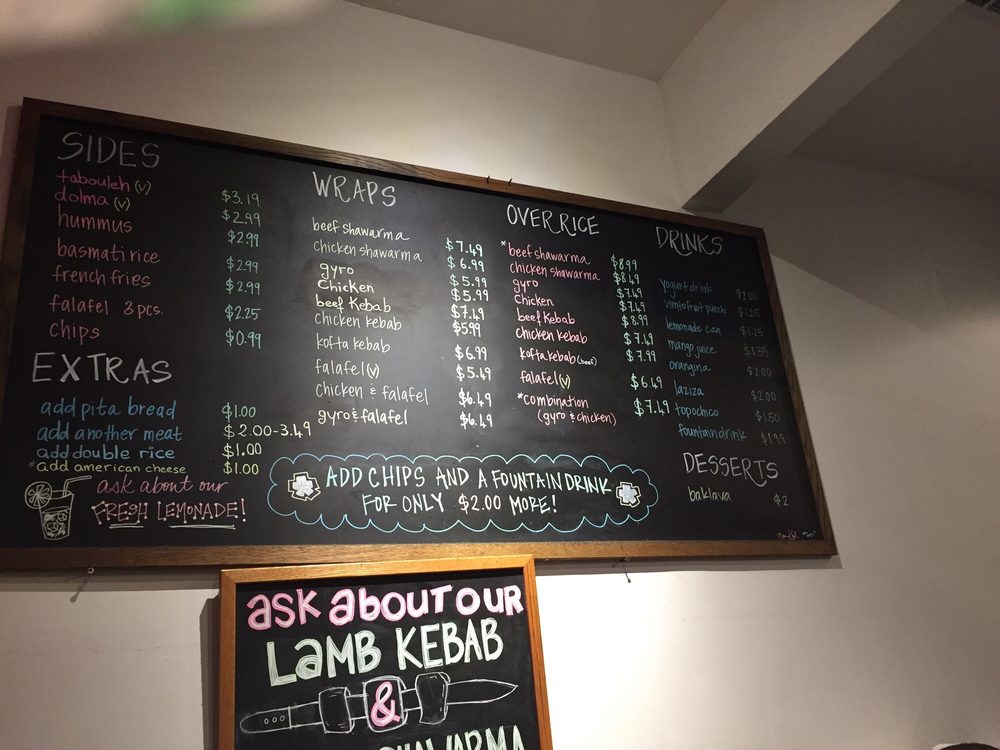 SIDES
tabouleh (v) $3.19
dolma (v) $2.99
hummus $2.99
basmati rice $2.99
french fries $2.99
falafel 3 pcs. $2.25
chips $0.99
EXTRAS
add pita bread $1.00
add another meat $2.00-3.49
add double rice $1.00
*add american cheese $1.00
ask about our
FRESH LEMONADE!
WRAPS
beef shawarma $7.49
chicken shawarma $6.99
gyro $5.99
Chicken $5.99
beef Kebab $7.49
chicken kebab $5.99
kofta kebab $6.99
falafel (v) $5.49
chicken & falafel $6.49
gyro & falafel $6.49
OVER RICE
*beef shawarma $8.99
chicken shawarma $8.49
gyro $7.49
Chicken $7.49
beef Kebab $8.99
chicken kebab $7.49
kofta kebab (beef) $7.99
falafel (v) $6.49
*combination $7.49
(gyro & chicken)
DRINKS
yogurt drink $2.00
vimto fruit punch $1.25
lemonade can $1.25
mango juice $1.35
orangina $2.00
laziza $2.00
topochico $1.50
fountain drink $1.99
DESSERTS
baklava $2
ADD CHIPS AND A FOUNTAIN DRINK
FOR ONLY $2.00 MORE!
ASK ABOUT OUR
LAMB KEBAB
&
SHAWARMA